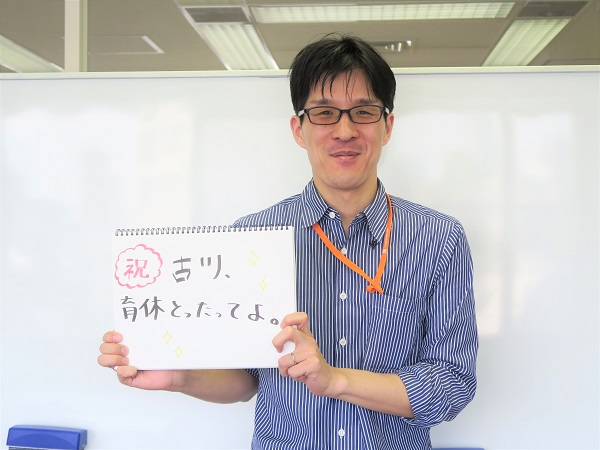 祝 古川、
育休とったってよ。